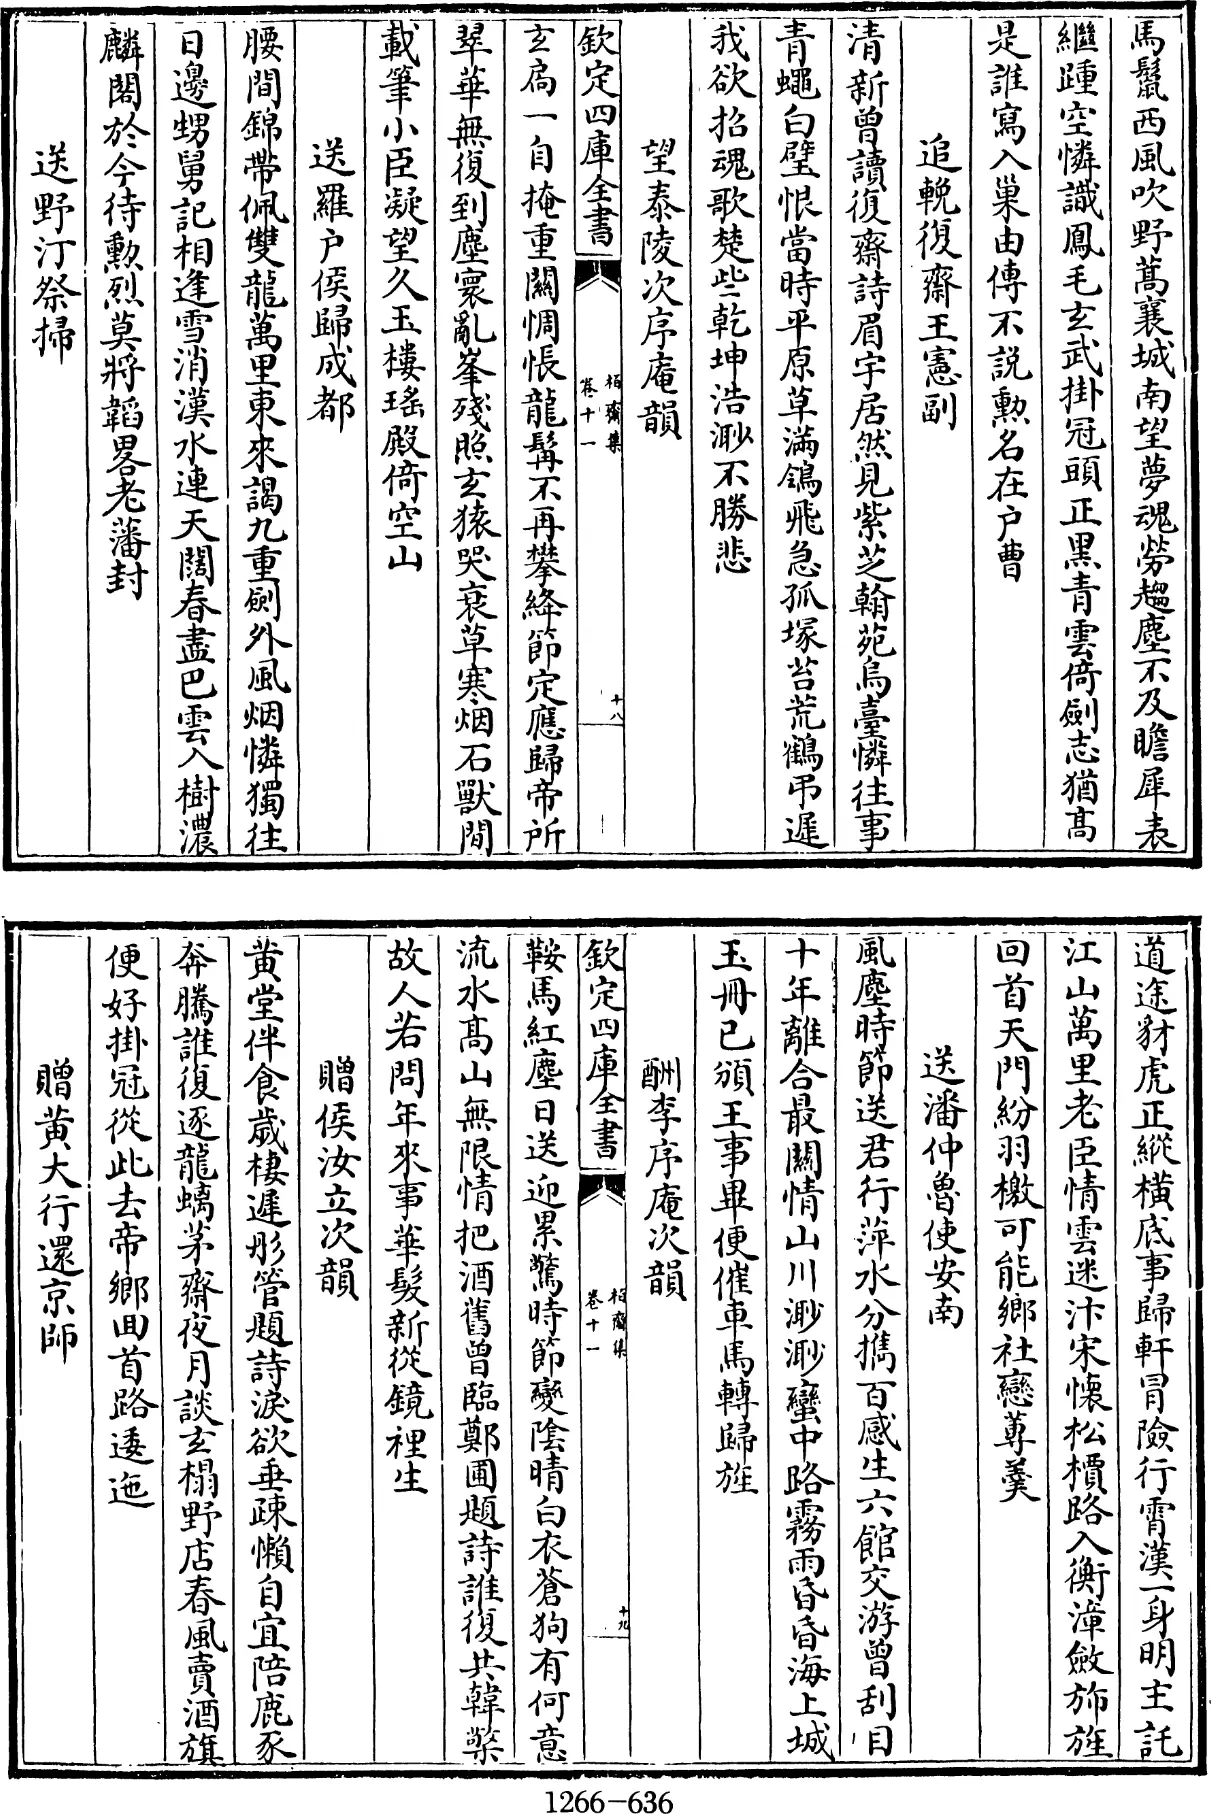 馬鬣西風吹野蒿襄城南望夢魂勞趨塵不及瞻犀表
繼踵空憐識鳳毛玄武掛冠頭正黒青雲倚劍志猶髙
是誰寫入巢由傳不說勲名在户曹
追輓復齋王憲副
清新曾讀復齋詩眉宇居然見紫芝翰苑烏臺憐往事
青蠅白璧恨當時平原草滿鴒飛急孤塚苔荒鶴弔遲
我欲招魂歌楚些乾坤浩渺不勝悲
望泰陵次序庵韻
欽定四庫全書
栢齋集
卷十一
十八
玄扃一自掩重闗惆悵龍髯不再攀絳節定應歸帝所
翠華無復到塵寰亂峯殘照玄猿哭衰草寒烟石獸間
載筆小臣凝望久玉樓瑤殿倚空山
送羅户侯歸成都
腰間錦帶佩雙龍萬里東來謁九重劍外風烟憐獨往
日邊甥舅記相逢雪消漢水連天闊春盡巴雲入樹濃
麟閣於今待勲烈莫將韜畧老藩封
送野汀祭掃
道途豺虎正縱橫底事歸軒冒險行霄漢一身明主託
江山萬里老臣情雲迷汴宋懐松檟路入衡漳斂斾旌
回首天門紛羽檄可能鄉社戀蓴羹
送潘仲魯使安南
風塵時節送君行萍水分攜百感生六館交游曾刮目
十年離合最闗情山川渺渺蠻中路霧雨昏昏海上城
玉冊已頒王事畢便催車馬轉歸旌
酬李序庵次韻
欽定四庫全書
栢齋集
卷十一
十九
鞍馬紅塵日送迎累驚時節變陰晴白衣蒼狗有何意
流水髙山無限情把酒舊曾臨鄭圃題詩誰復共韓檠
故人若問年來事華髮新從鏡裡生
贈侯汝立次韻
黄堂伴食歳棲遲彤管題詩淚欲垂疎懶自宜陪鹿豕
奔騰誰復逐龍螭茅齋夜月談玄榻野店春風賣酒旗
便好掛冠從此去帝鄉囬首路逶迤
贈黄大行還京師
1266-636